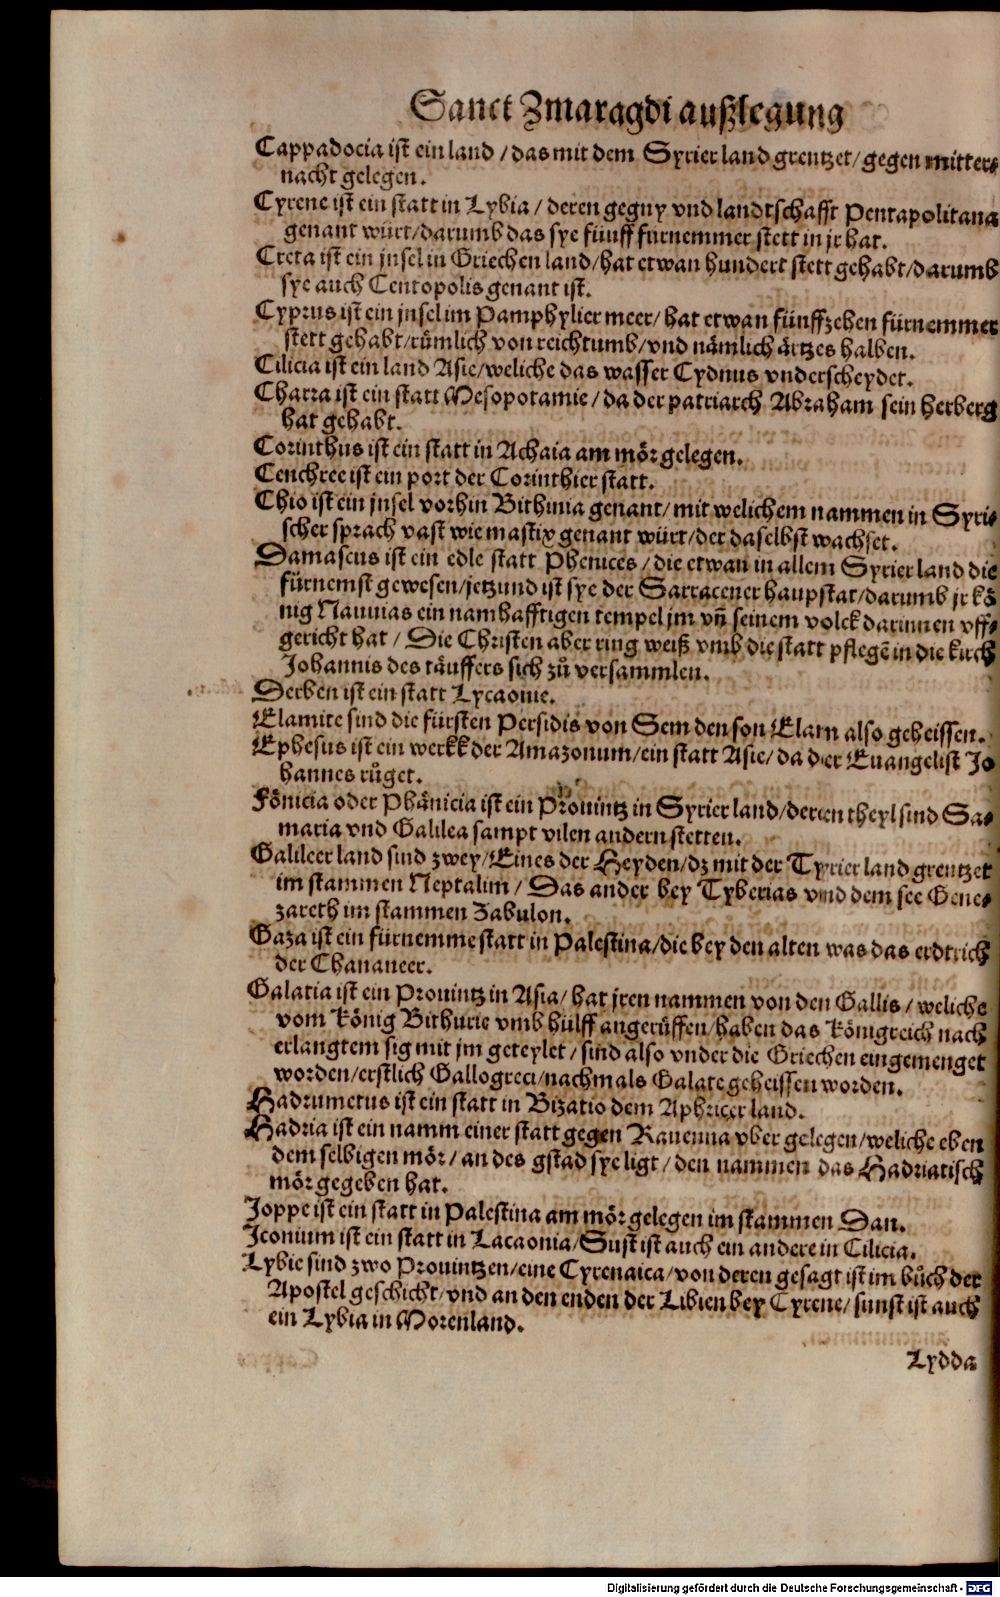 Sanct Zmaragdi außlegung
Cappadocia ist ein land / das mit dem Syrier land grentzet / gegen mitter⸗
nacht gelegen.
Cyrene ist ein statt in Lybia / deren gegny vnd landtschafft Pentapolitana
genant würt / darumb das sye fünff fürnemmer stett in jr hat.
Creta ist ein jnsel in Griechen land / hat etwan hundert stett gehabt / darumb
sye auch Centopolis genant ist.
Cyprus ist ein jnsel im Pamphylier meer / hat etwan fünffzehen fürnemmer
stett gehabt / rümlich von reichtumb / vnd nämlich ärtzes halben.
Cilicia ist ein land Asie / weliche das wasser Cydnus vnderscheydet.
Charra ist ein statt Mesopotamie / da der patriarch Abraham sein herberg
hat gehabt.
Corinthus ist ein statt in Achaia am mör gelegen.
Cenchree ist ein port der Corinthier statt.
Chio ist ein jnsel vorhin Bithinia genant / mit welichem nammen in Syri⸗
scher sprach vast wie mastix genant würt / der daselbst wachset.
Damascus ist ein edle statt Phenices / die etwan in allem Syrier land die
fürnemst gewesen / jetzund ist sye der Sarracener haupstat / darumb jr kö
nig Nauuias ein namhafftigen tempel jm vñ seinem volck darinnen vff⸗
gericht hat / Die Christen aber ring weiß vmb die statt pflegẽ in die kirch
Johannis des täuffers sich zů versammlen.
Derben ist ein statt Lycaonie.
Elamite sind die fürsten Persidis von Sem den son Elam also geheissen.
Ephesus ist ein werkk der Amazonum / ein statt Asie / da der Euangelist Jo
hannes růget.
Fönicia oder Phänicia ist ein Prouintz in Syrier land / deren theyl sind Sa⸗
maria vnd Galilea sampt vilen andern stetten.
Galileer land sind zwey / Eines der Heyden / dz mit der Tyrier land grentzet
im stammen Neptalim / Das ander bey Tyberias vnd dem see Gene⸗
zareth im stammen Zabulon.
Gaza ist ein fürnemme statt in Palestina / die bey den alten was das erdtrich
der Chananeer.
Galatia ist ein Prouintz in Asia / hat jren nammen von den Gallis / weliche
vom König Bithurie vmb hülff angerüffen / haben das Königreich nach
erlangtem sig mit jm geteylet / sind also vnder die Griechen eingemenget
worden / erstlich Gallogreci / nachmals Galate geheissen worden.
Hadrumetus ist ein statt in Bizatio dem Aphricer land.
Hadria ist ein namm einer statt gegen Rauenna vber gelegen / weliche eben
dem selbigen mör / an des gstad sye ligt / den nammen das Hadriatisch
mör gegeben hat.
Joppe ist ein statt in Palestina am mör gelegen im stammen Dan.
Iconium ist ein statt in Lacaonia / Sust ist auch ein andere in Cilicia.
Lybie sind zwo Prouintzen / eine Cyrenaica / von deren gesagt ist im bůch der
Apostel geschicht / vnd an den enden der Libien bey Cyrene / sunst ist auch
ein Lybia in Morenland.
Lydda
Digitalisierung gefördert durch die Deutsche Forschungsgemeinschaft - DFG